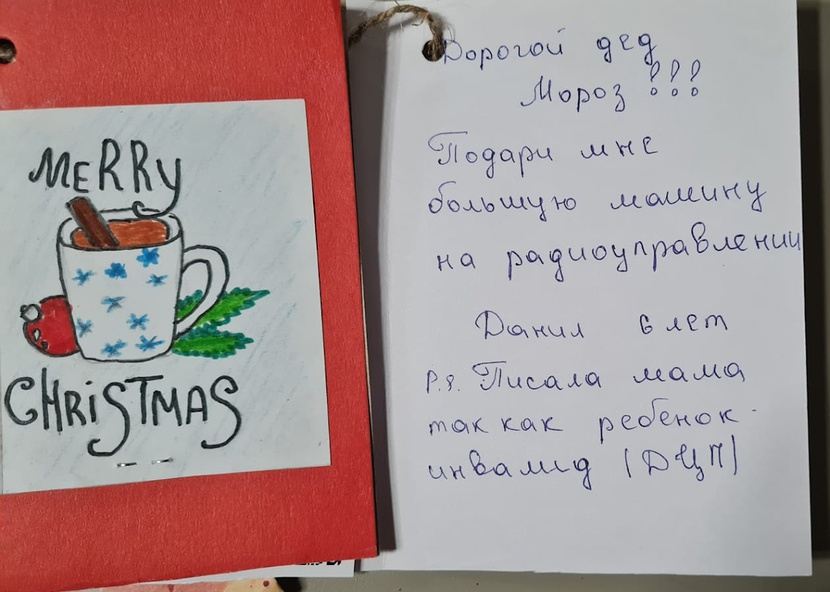 MERRY
CHRISTMAS
Дорогой дед
Мороз !!!
Подари мне
большую машину
на радиоуправлении
Данил 6 лет
P.S. Писала мама
так как ребенок-
инвалид (ДЦП)